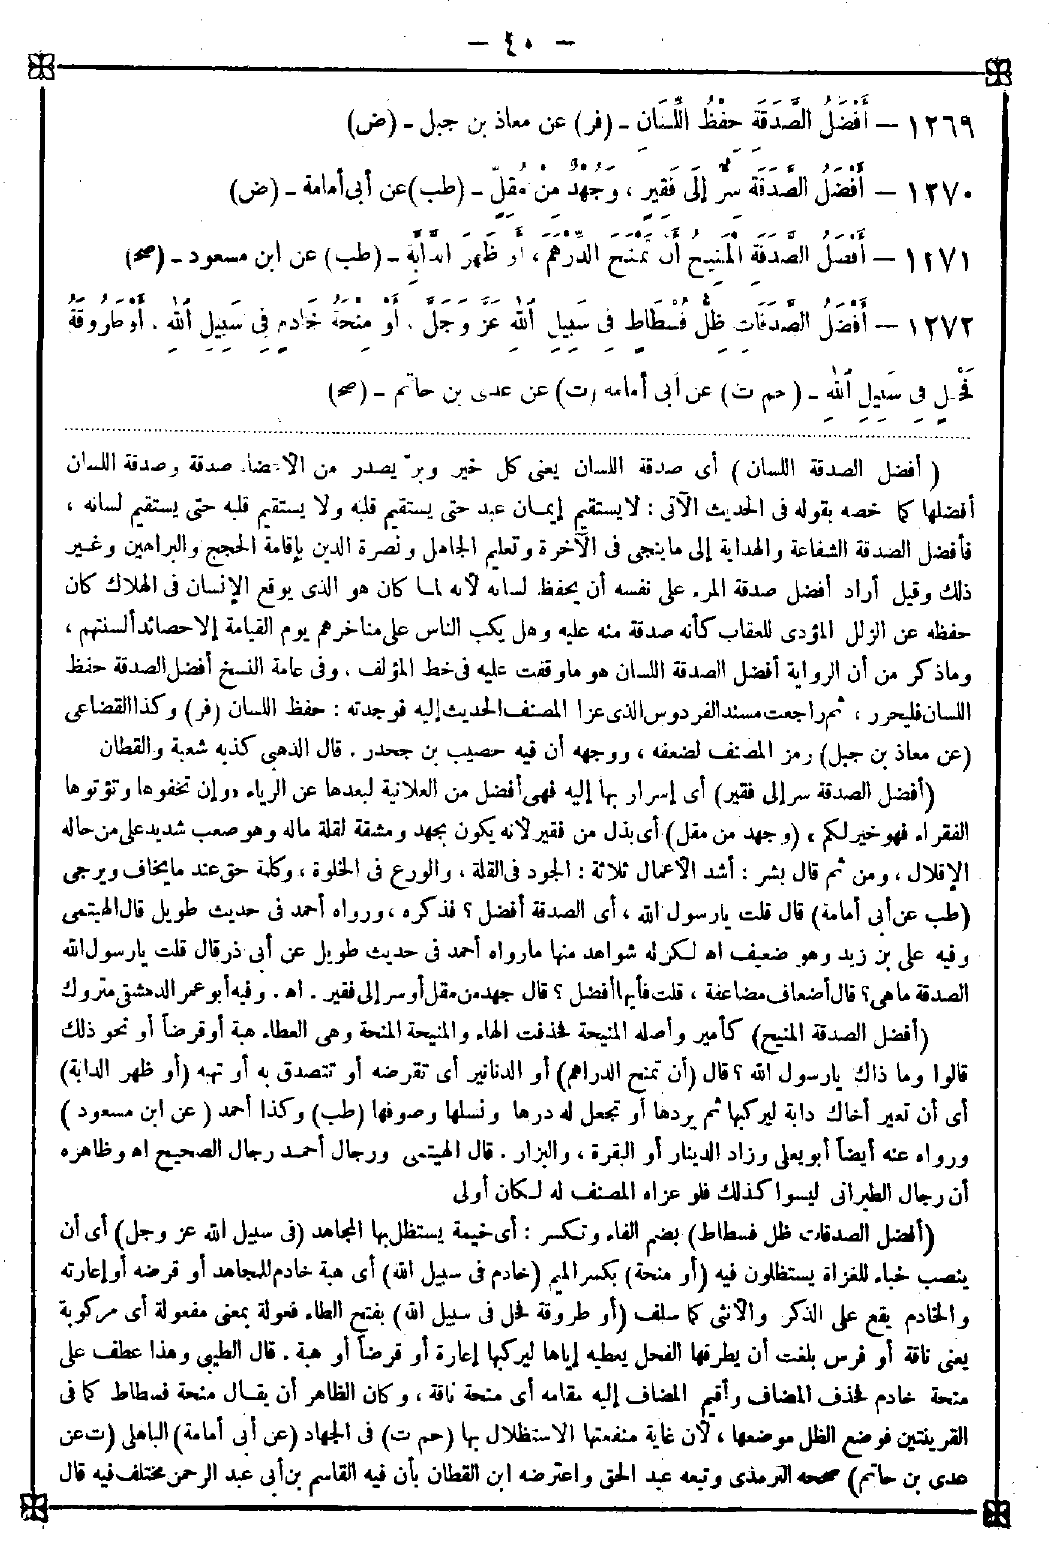 — ٤٠ —
١٢٦٩ — أَفْضَلُ الصَّدَقَةِ حِفْظُ اللِّسَانِ - (فر) عن معاذ بن جبل - (ض)
١٢٧٠ — أَفْضَلُ الصَّدَقَةِ سِرٌّ إِلَى فَقِيرٍ ، وَجُهْدٌ مِنْ مُقِلٍّ - (طب) عن أبى أمامة - (ض)
١٢٧١ — أَفْضَلُ الصَّدَقَةِ الْمَنِيحُ أَن تَمْنَحَ الدِّرْهَمَ ، أَوْ ظَهْرَ الدَّابَّةِ - (طب) عن ابن مسعود - (صح)
١٢٧٢ — أَفْضَلُ الصَّدَقَاتِ ظِلُّ فُسْطَاطٍ فِى سَبِيلِ اللهِ عَزَّ وَجَلَّ . أَوْ مِنْحَةُ خَادِمٍ فِى سَبِيلِ اللهِ . أَوْ طَرُوقَةُ
فَحْلٍ فِى سَبِيلِ اللهِ - ( حم ت ) عن أبى أمامه (ت) عن عدى بن حاتم - (صح)
( أفضل الصدقة اللسان ) أى صدقة اللسان يعنى كل خير وبرّ يصدر من الأعضاء صدقة وصدقة اللسان
أفضلها كما خصه بقوله فى الحديث الآتى : لا يستقيم إيمـان عبد حتى يستقيم قلبه ولا يستقيم قلبه حتى يستقيم لسانه ،
فأفضل الصدقة الشفاعة والهداية إلى ما ينجى فى الآخرة وتعليم الجاهل ونصرة الدين بإقامة الحجج والبراهين وغـير
ذلك وقيل أراد أفضل صدقة المرء على نفسه أن يحفظ لسانه لأنه لمـا كان هو الذى يوقع الإنسان فى الهلاك كان
حفظه عن الزلل المؤدى للعقاب كأنه صدقة منه عليه وهل يكب الناس على مناخرهم يوم القيامة إلا حصائد ألسنتهم ،
وماذكر من أن الرواية أفضل الصدقة اللسان هو ماوقفت عليه فى خط المؤلف ، وفى عامة النسخ أفضل الصدقة حفظ
اللسان فليحرر ، ثم راجعت مسند الفردوس الذى عزا المصنف الحديث إليه فوجدته : حفظ اللسان (فر) وكذا القضاعى
(عن معاذ بن جبل) رمز المصنف لضعفه ، ووجهه أن فيه حصيب بن جحدر . قال الذهبى كذبه شعبة والقطان
(أفضل الصدقة سر إلى فقير) أى إسرار بها إليه فهى أفضل من العلانية لبعدها عن الرياء «وإن تخفوها وتؤتوها
الفقراء فهو خير لكم ، (وجهد من مقل) أى بذل من فقير لأنه يكون بجهد ومشقة لقلة ماله وهو صعب شديد على من حاله
الإقلال ، ومن ثم قال بشر : أشد الأعمال ثلاثة : الجود فى القلة ، والورع فى الخلوة ، وكلمة حق عند ما يخاف ويرجى
(طب عن أبى أمامة) قال قلت يارسول الله ، أى الصدقة أفضل ؟ فذكره ، ورواه أحمد فى حديث طويل قال الهيتمى
وفيه على بن زيد وهو ضعيف اه لكن له شواهد منها مارواه أحمد فى حديث طويل عن أبى ذر قال قلت يارسول الله
الصدقة ماهى؟ قال أضعاف مضاعفة ، قلت فأيها أفضل ؟ قال جهد من مقل أو سر إلى فقير . اه . وفيه أبو عمر الدمشقى متروك
(أفضل الصدقة المنيح) كأمير وأصله المنيحة فحذفت الهاء والمنيحة المنحة وهى العطاء هبة أو قرضاً أو نحو ذلك
قالوا وما ذاك يارسول الله ؟ قال (أن تمنح الدراهم) أو الدنانير أى تقرضه أو تتصدق به أو تهبه (أو ظهر الدابة)
أى أن تعير أخاك دابة ليركبها ثم يردها أو تجعل له درها ونسلها وصوفها (طب) وكذا أحمد ( عن ابن مسعود )
ورواه عنه أيضاً أبو يعلى وزاد الدينار أو البقرة ، والبزار . قال الهيتمى ورجال أحمـد رجال الصحيح اه وظاهره
أن رجال الطبرانى ليسوا كذلك فلو عزاه المصنف له لكان أولى
(أفضل الصدقات ظل فسطاط) بضم الفاء وتكسر : أى خيمة يستظل بها المجاهد (فى سبيل الله عز وجل) أى أن
ينصب خباء للغزاة يستظلون فيه (أو منحة) بكسر الميم (خادم فى سبيل الله) أى هبة خادم للمجاهد أو قرضه أو إعارته
والخادم يقع على الذكر والأنثى كما سلف (أو طروقة فحل فى سبيل الله) بفتح الطاء فعولة بمعنى مفعولة أى مركوبة
يعنى ناقة أو فرس بلغت أن يطرقها الفحل يعطيه إياها ليركبها إعارة أو قرضاً أو هبة . قال الطيبى وهذا عطف على
منحة خادم فحذف المضاف وأقيم المضاف إليه مقامه أى منحة ناقة ، وكان الظاهر أن يقـال منحة فسطاط كما فى
القرينتين فوضع الظل موضعها ، لأن غاية منفعتها الاستظلال بها (حم ت) فى الجهاد (عن أبى أمامة) الباهلى (ت عن
عدى بن حاتم) صححه الترمذى وتبعه عبد الحق واعترضه ابن القطان بأن فيه القاسم بن أبى عبد الرحمن مختلف فيه قال